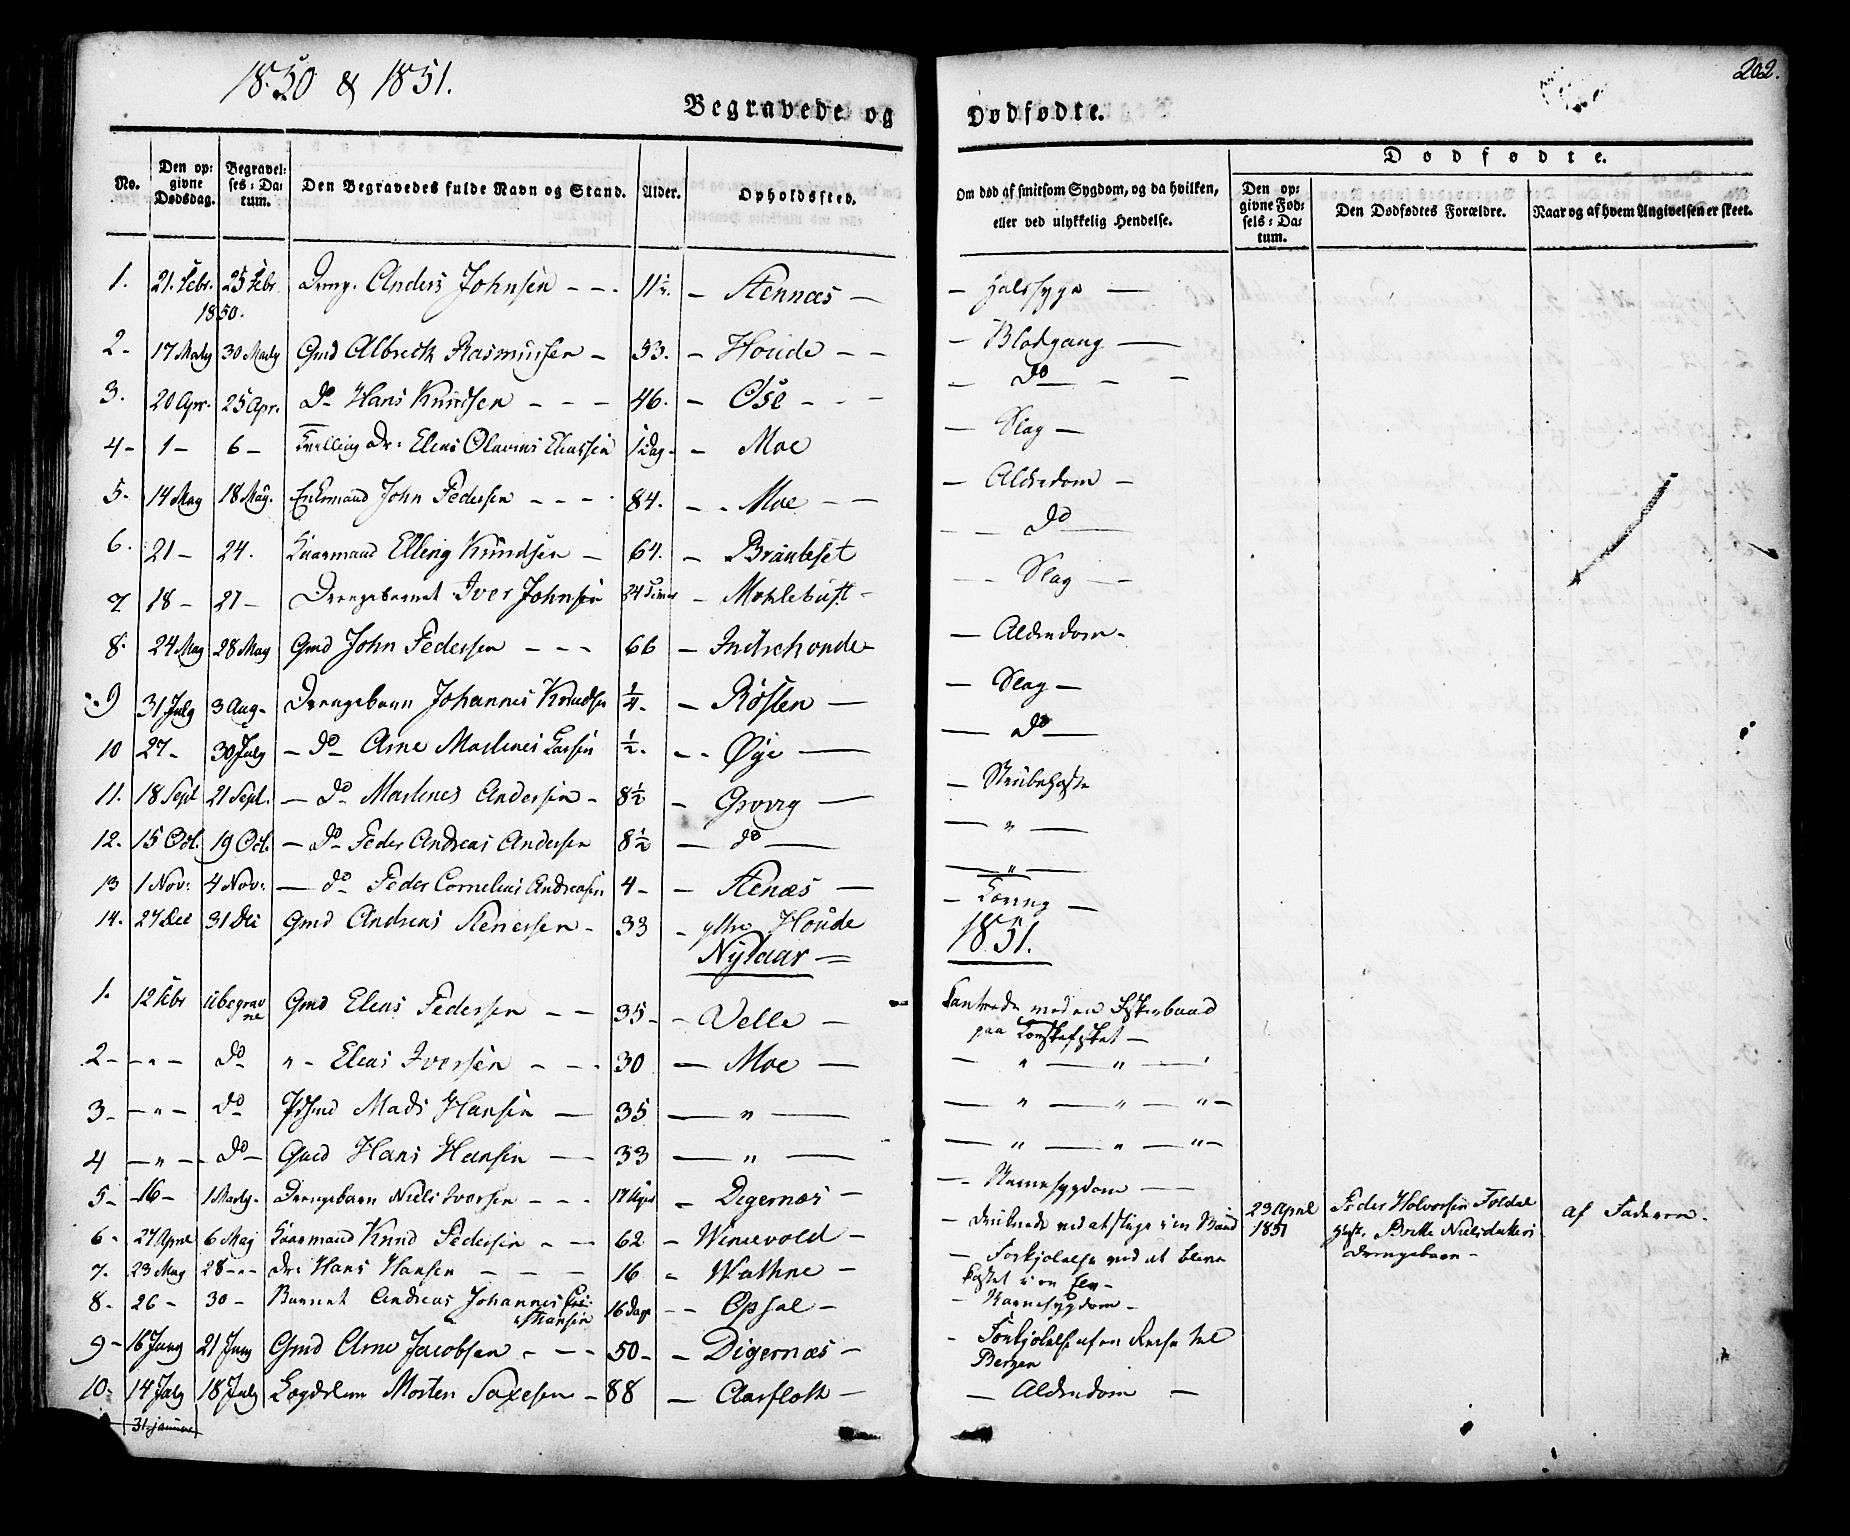 1850 & 1851.
202.
Begravede og Dødfødte.
No.
Den op-
givne
Dødsdag.
Begravel-
ses-Da-
tum.
Den Begravedes fulde Navn og Stand.
Alder.
Opholdssted.
Om død af smitsom Sygdom, og da hvilken,
eller ved ulykkelig Hendelse.
Dødfødte.
Den op-
givne Fød-
sels-Da-
tum.
Den Dødfødtes Forældre.
Naar og af hvem Angivelsen er skeet.
1. 21. Febr. 25 Febr Dreng. Anders Johnsen - - . 11½. - Stennæs - - Halssyge -
1850.
2 - 17 Marty 30 Marty Gmd Albreck Rasmussen - 53. - Houde - - - Blodgang -
3. 20 Apr. 25 Apr. Do Hans Knudsen - - - 46. - Øse - - - - Do - -
4 - 1 - 6 - Tvilling Dr: Elias Olavius Eliassen 1 Dag - - Moe - Slag -
5. 14 May 18 May. Enkemand John Pedersen - - - 84. - - Moe - - - Alderdom -
6. 21 - 24. Kaarmand Elling Knudsen - 64. - Brauteset - - Do -
7 18 - 27 - Drengebarnet Iver Johnsen 24 Timer - Moklebust - - - Slag - -
8. 24 May 28 May Gmd John Pedersen - - - 66 - Indrehoude - - Alderdom -
9 31 July 3 Aug - Drengebarn Johannes Knudsen ¼ - - Røsten - - Slag -
10 27 - 30 July - do - Arne Martines Larsen ½. - - Øye - - do -
11. 18 Sept 21 Sept. - Do - Martines Andersen - 8½ - Grovig - - Strubehoste
12. 15 Oct. 19 Oct. - Do - Peder Andreas Andersen 8½ - do - - " -
13 1 Nov: 4 Nov: - do - Peder Cornelius Andreasen 4 - - Stenæs - - " -
14. 27 Dec 31 Dec Gmd Andreas Stenersen - 33 - ytre Houde - Tæring -
Nytaar = 1851.
1. 12 Febr ubegrav
ne Gmd Elias Pedersen - - 35 - - Velle - Kantrede med en Fiskerbaad
paa Torskefisket -
2 - - " - do " - Elias Iversen - - - 30 - Moe - - " - " -
3 - - " - do Pdsmd Mads Hansen - 35 - " - - " - " - " -
4 - " - - do - Gmd Hans Hansen - - 33 - " - - " - " - " -
5 - -16 - 1 Marty - Drengebarn Niels Iversen - - - 17 Uger - Digernæs - - - Barnesygdom - -
6 - 27 April 6 May Kaarmand Knud Pedersen - - 62 - Winievold - - druknede ved at stige i en Baad
7. 23 May 28 - " - dr: Hans Hansen - - - 16 - Wathne - - Forkjølelse ved at blive
kastet i en Elv -
8 - 26 - 30 - Barnet Andreas Johannes
Hansen 16 Dage - - Opsal - - Barnesygdom -
9 - 16 Juny 21 Juny Gmd Arne Jacobsen - - - 50 - - Digernæs - - Forkjølelse af en Reise til
Bergen
10 - 14 July 18 July Lægdslem Morten Saxesen - 88 - Aarfloth - - Alderdom -
31 januar
23 April
1851
Peder Halvorsen Foldal
Hust. Britte Nielsdatters
Drengebarn -
af Faderen -